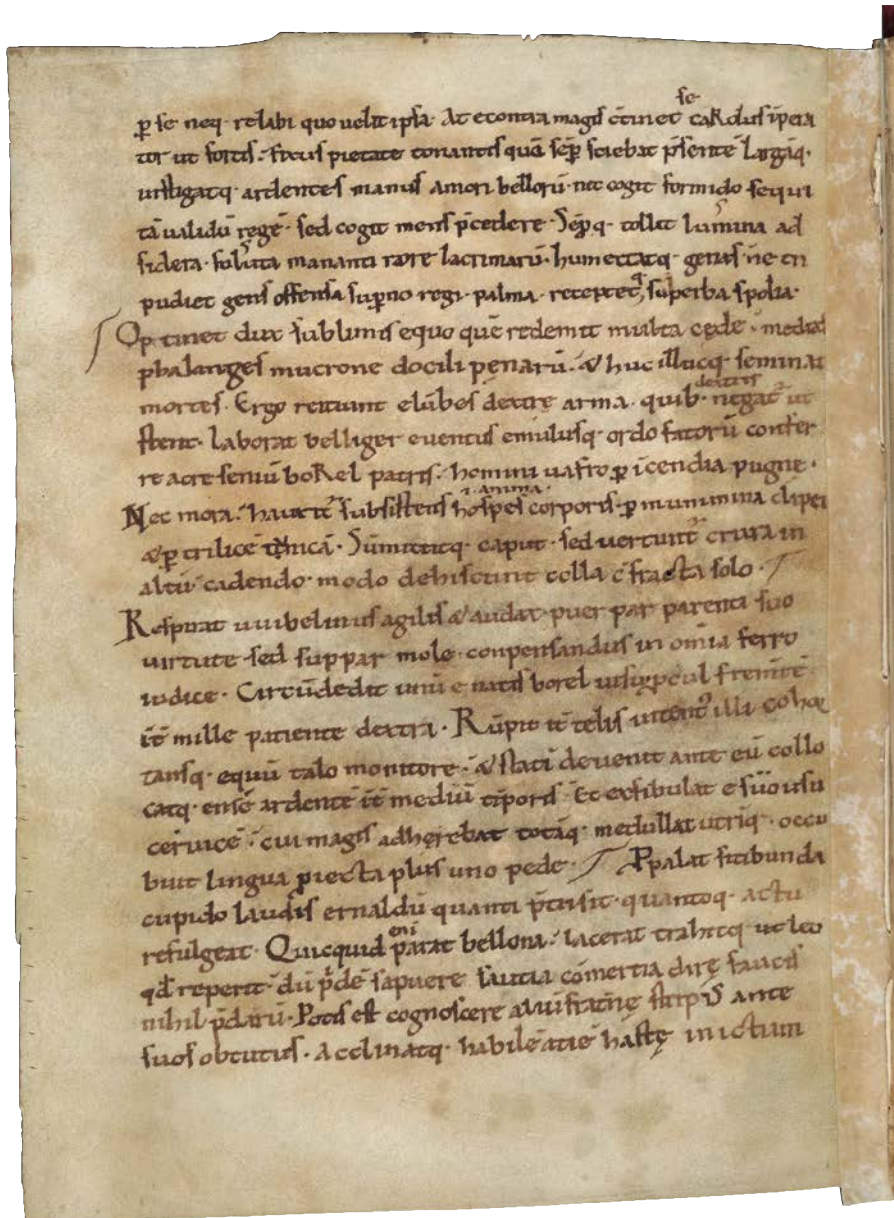 se
p̱ se neq· relabi quo uelit ipsa· At econtra magis c̄tinet caRolus īpera
tor ut fortis· fretus pietate tonantis quā sēp̱ sciebat p̄sentē largāq·
instigatq· ardentes manus amori bellorū· nec cogit formido sequi
tā ualidū regē· sed cogit mens p̄cedere· Sēp̱q· tollit lumina ad
sidera· soluta mananti rore lacrimarū· humectatq· genas· ne tri
pudiet gens offensa sup̱no regi· palma· retextet q; superba spolia·
Optinet dux sublimis equo quē redemit multa cęde· medias
phalanges mucrone docili penarū· & huc illucq· seminat
dextris
mortes· Ergo reiciunt elūbes dextrę arma· quib· negat̄ ut
stent· laborat belliger euentus emulusq· ordo fatorū confer
re acre seniū boRel patris· homini uafro p̱ īcendia pugnę·
.i. anima·
Nec mora· haurit̄ subsistens hospes corporis· p̱ munimina clipei
& p̱ trilicē tunicā· Sūmittitq· caput· sed uertunt̄ crura in
altū cadendo· modo dehiscunt colla c̄fracta solo·
Respirat uuibelinus agilis & audax puer par parenti suo
uirtute sed suppar mole· conpensandus in om̄ia ferro
iudice· Circūdedit unū e natis borel procul fremitē·
īt̄ mille patiente dextra· Rūpit īt̄ telis illi cohor
tansq· equū talo monitore· & statī deuenit ante eū collo
catq· ensē ardentē īt̄ mediū tīporis· Et exfibulat e suo usu
ceruicē· cui magis adherebat totāq· medullat utriq· occu
buit lingua p̱iecta plus uno pede· P̱palat sitibunda
cupido laudis ernaldū quanti p̄cii sit· quantoq· actu
eni
refulgeat· Quicquid parat bellona· lacerat trahitq· ut leo
qd̄ reperit· dū p̄dē sapuere sautia cōmertia dirę faucis
nihil p̄darū· Potis est cognoscere stirpis ante
suos obtutus· Acclinatq· habilē atiē hastę in ictum